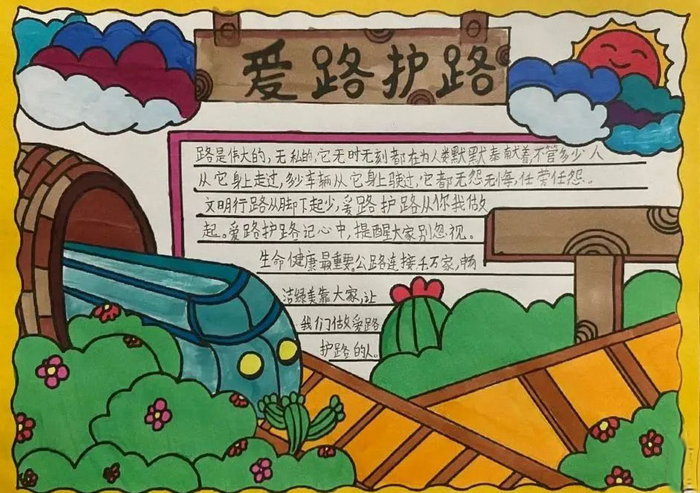 爱路护路
路是伟大的，无私的，它无时无刻都在为人类默默奉献着，不管多少人
从它身上走过，多少车辆从它身上驶过，它都无怨无悔，任劳任怨...
文明行路从脚下起步，爱路护路从你我做
起。爱路护路记心中，提醒大家别忽视。
生命健康最重要，公路连接千万家，畅
洁绿美靠大家，让
我们做爱路
护路的人。